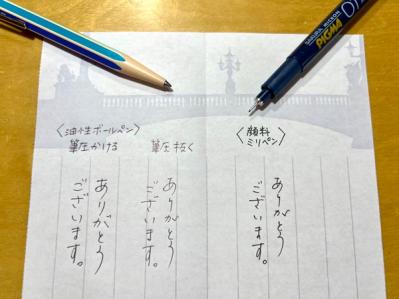 SAKURA MICRON
PIGMA
〈油性ボールペン〉
筆圧かける
筆圧抜く
〈顔料
ミリペン〉
ありがとう
ございます。
ありがとう
ございます。
ありがとう
ございます。